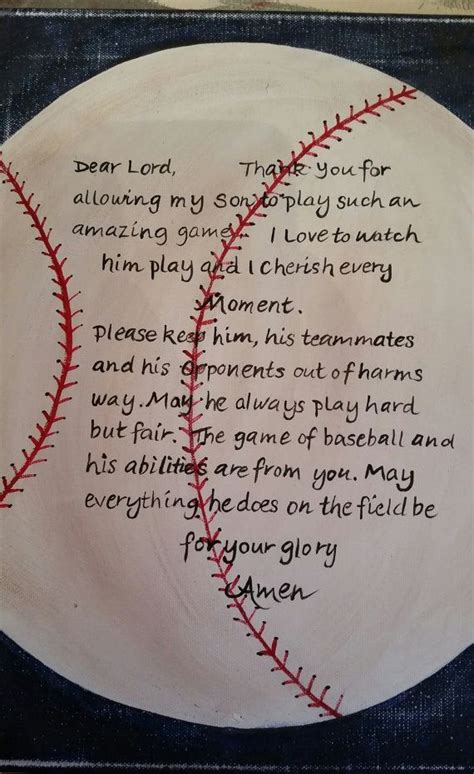 Dear Lord, Thank You for
allowing my Son to play such an
amazing game. I Love to watch
him play and I cherish every
Moment.
Please keep him, his teammates
and his Opponents out of harms
way. May he always play hard
but fair. The game of baseball and
his abilities are from you. May
everything he does on the field be
for your glory
Amen